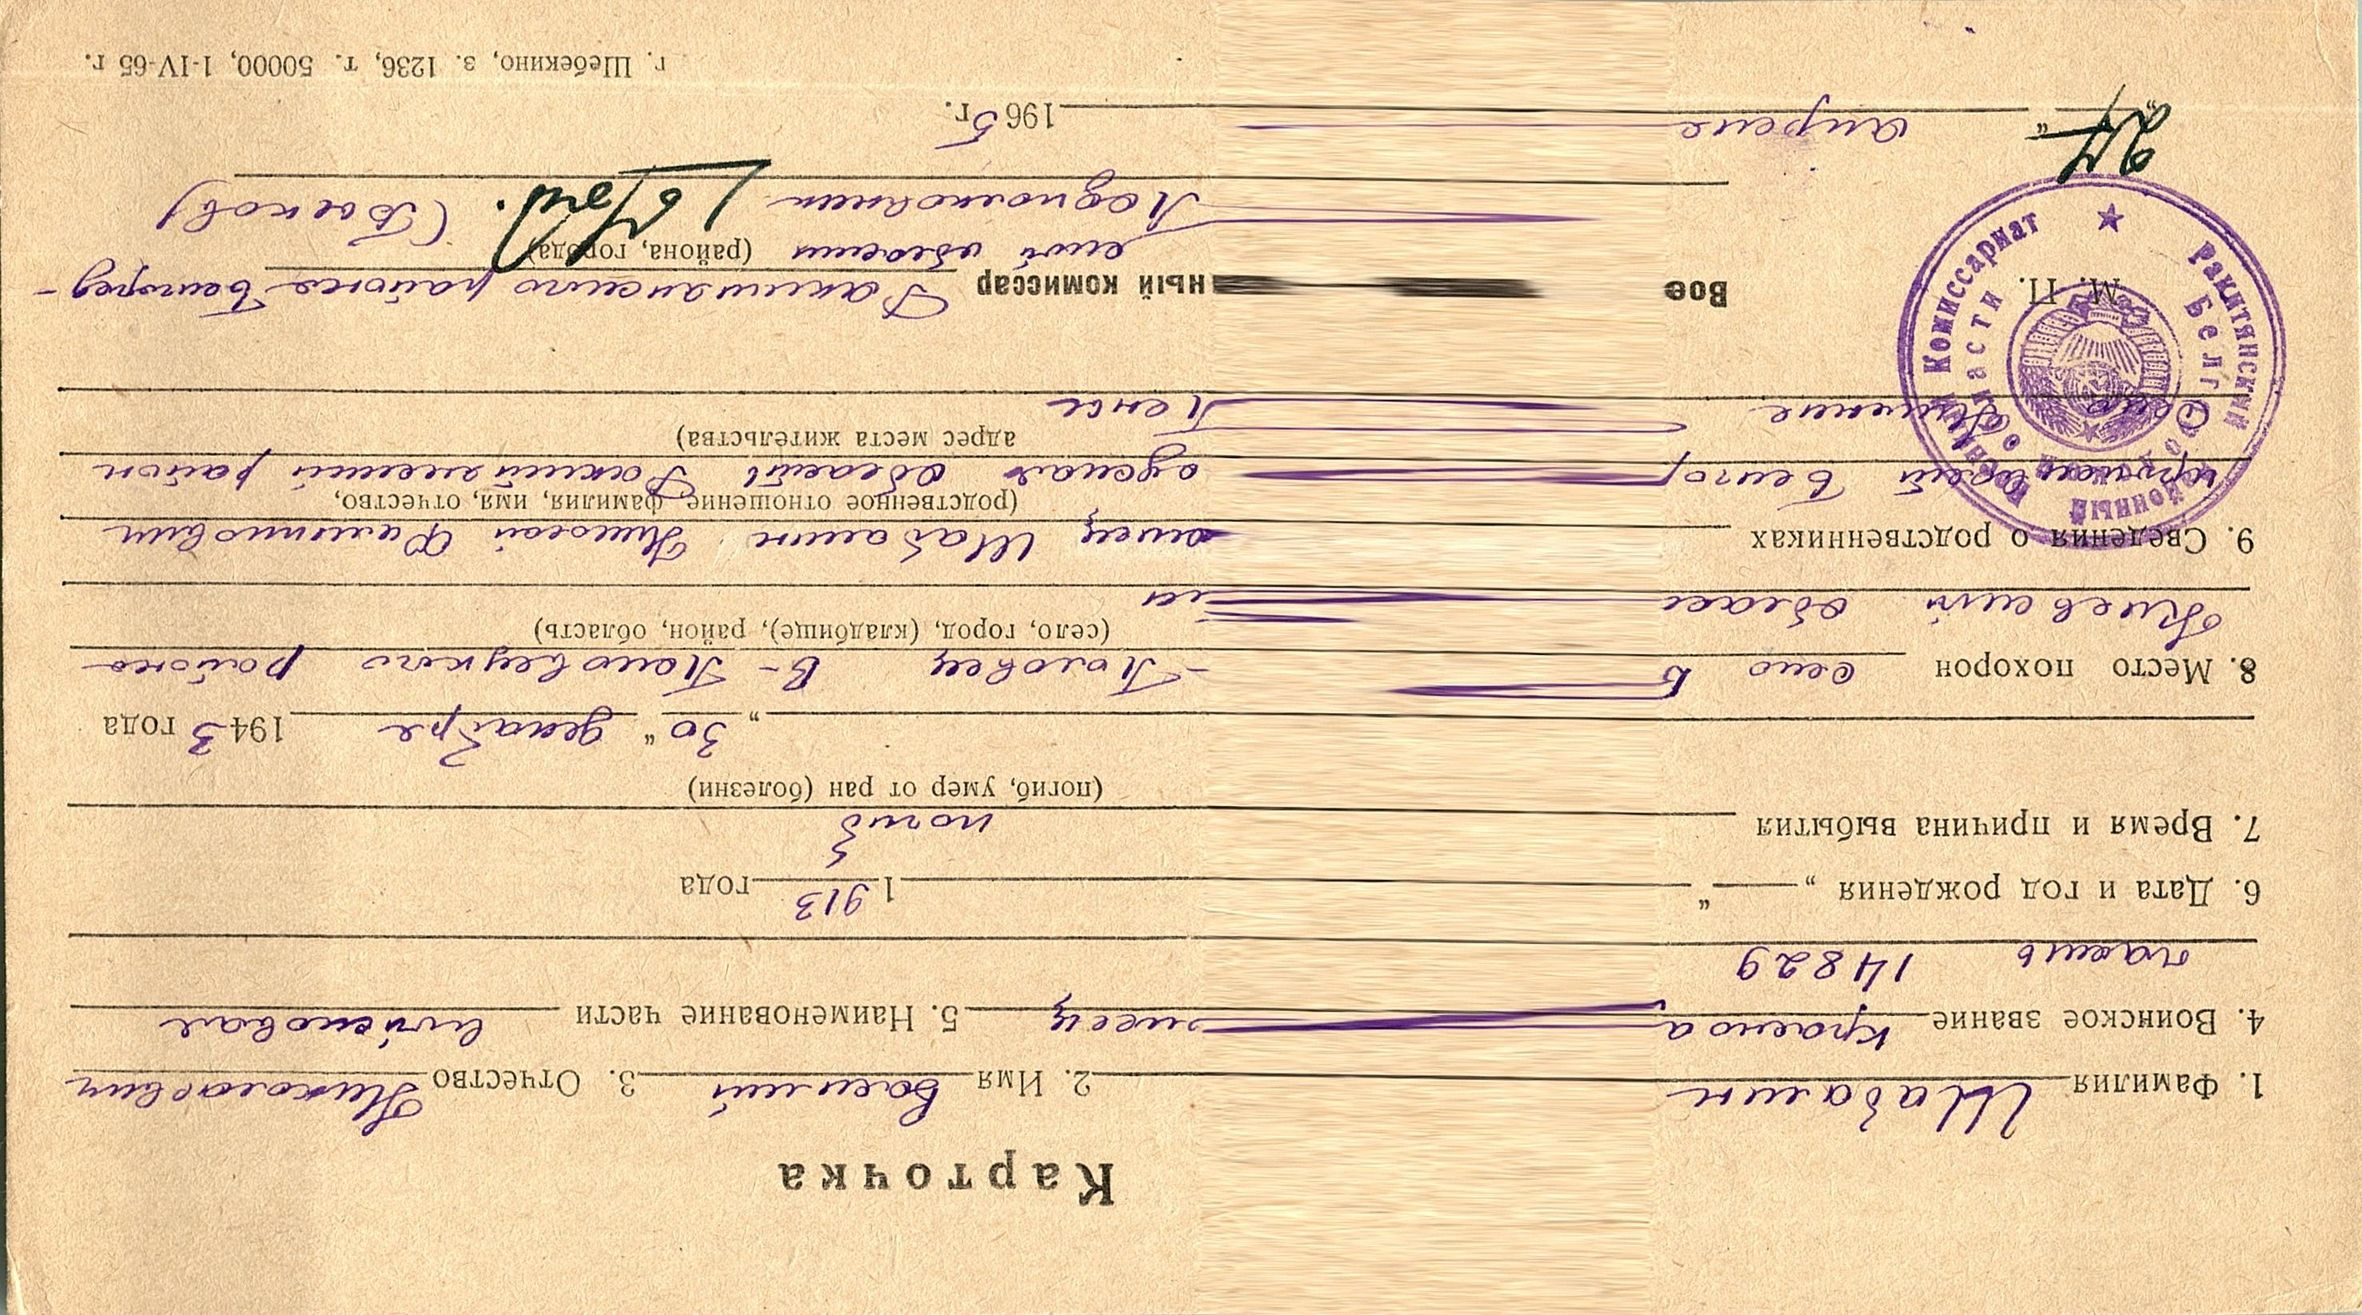 Карточка
1. Фамилия Шабалин 2. Имя Василий 3. Отчество Николаевич
4. Воинское звание красноа меец 5. Наименование части войсковая
часть 14829
6. Дата и год рождения „ “ 1913 года
7. Время и причина выбытия погиб
(погиб, умер от ран (болезни)
„30“ декабря 1943 года
8. Место похорон село В -Половец В-Половецкого района
(село, город, (кладбище), район, область)
Киевский облас
9. Сведения о родственниках отец Шабалин Николай Филиппович
(родственное отношение, фамилия, имя, отчество,
Белгор одская область Ракитянский район
адрес места жительства)
село
М. П.
Вое ный комиссар Ракитянского района Белгород-
ской области (района, города)
Подполковник (Боенов)
„27“ апреля 1965 г.
г. Шебекино, з. 1236, т. 50000, 1-IV-65 г.
Ракитянский районный военный комиссариат
Белгородской области